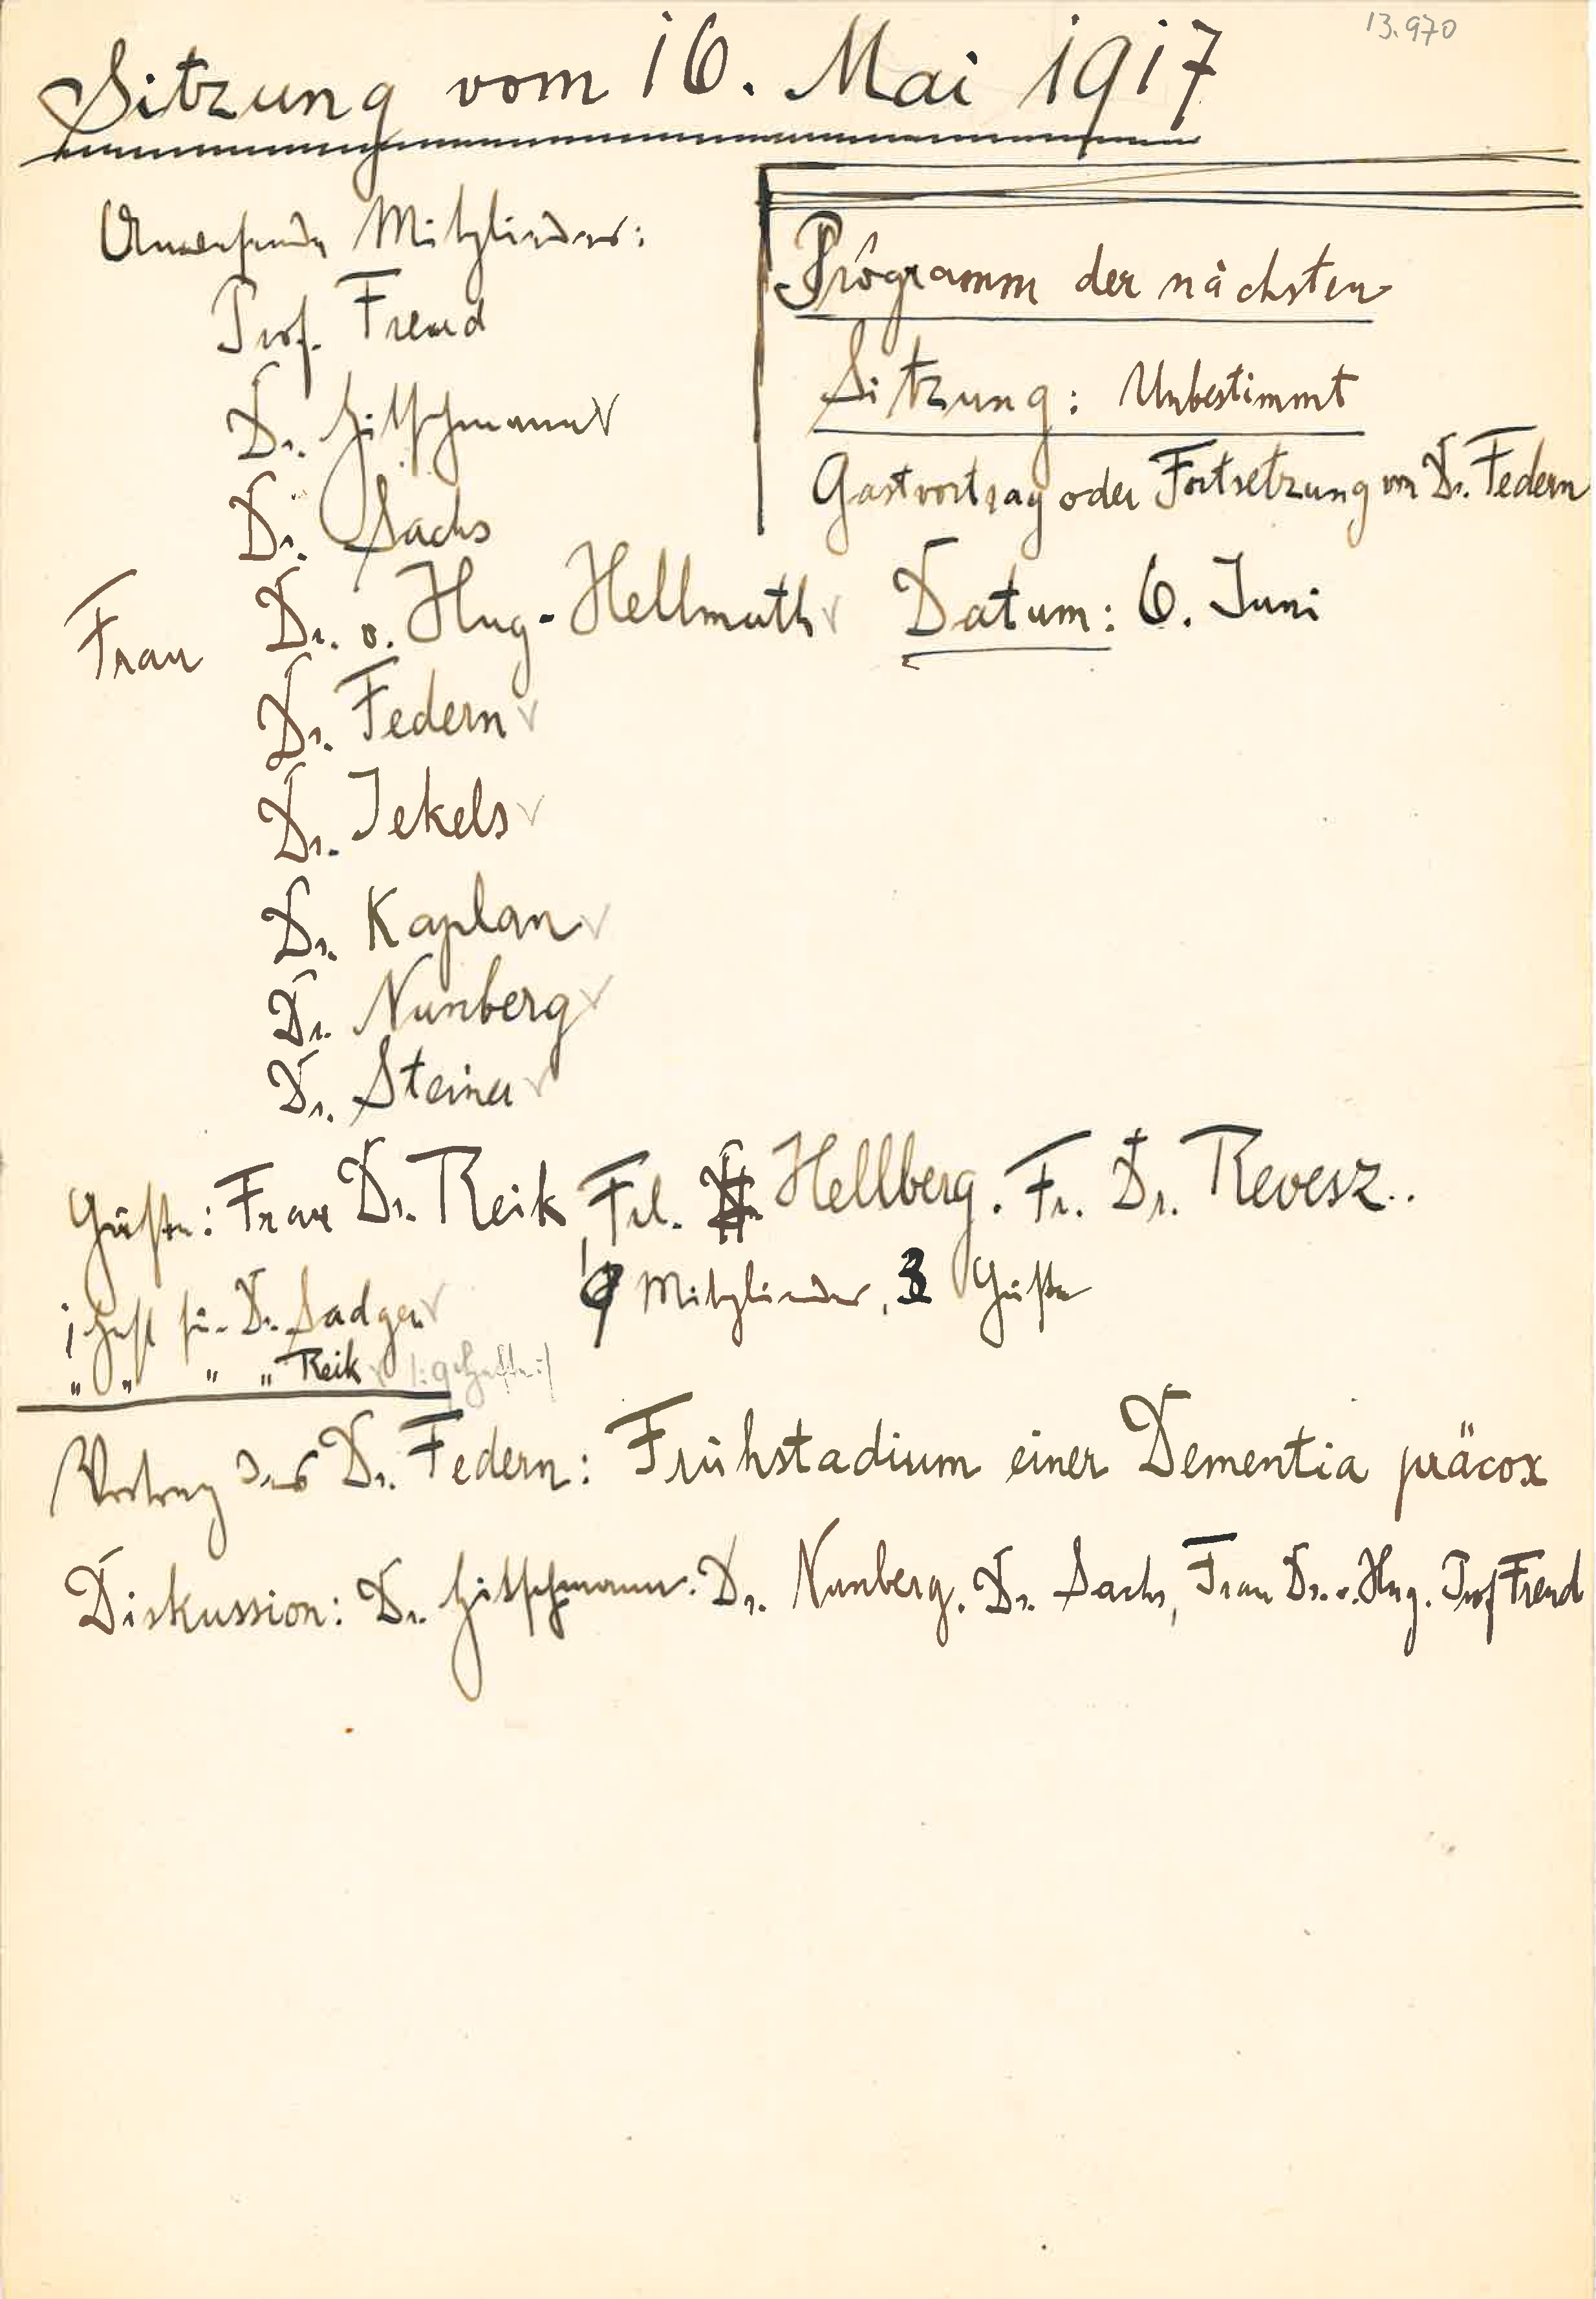 13.970
Sitzung vom 16. Mai 1917
Anwesende Mitglieder:
Prof. Freud
Dr. Hitschmann
Dr. Sachs
Frau Dr. v. Hug-Hellmuth
Dr. Federn
Dr. Jekels
Dr. Kaplan
Dr. Nunberg
Dr. Steiner
Programm der nächsten
Sitzung: Unbestimmt
Gastvortrag oder Fortsetzung von Dr. Federn
Datum: 6. Juni
Gäste: Frau Dr. Reik, Frl. Hellberg. Fr. Dr. Revesz..
9 Mitglieder, 3 Gäste
1 Heft für Dr. Sadger
" " " " Reik
Vortrag des Dr. Federn: Frühstadium einer Dementia präcox
Diskussion: Dr. Hitschmann. Dr. Nunberg. Dr. Sachs, Frau Dr. v. Hug. Prof Freud